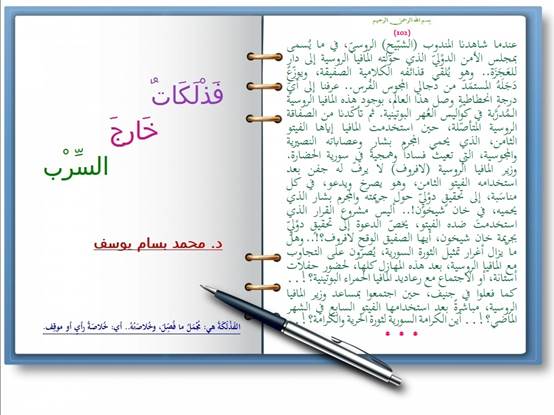 بسم الله الرحمن الرحيم
(202)
عندما شاهدنا المندوب (الشبّيح) الروسيّ، في ما يُسمى
بمجلس الأمن الدوليّ الذي حوّلته المافيا الروسية إلى دار
للعَجَزة.. وهو يُلقي قذائفه الكلامية الصفيقة، ويوزّع
دَجَلَهُ المستمَد من دجالي المجوس الفُرس.. عرفنا إلى أيّ
درجةٍ انحطاطيةٍ وصل هذا العالَم، بوجود هذه المافيا الروسية
المُدرَّبة في كواليس العُهر البوتينية. ثم تأكدنا من الصفاقة
الروسية المتأصّلة، حين استخدمت المافيا إياها الفيتو
الثامن، الذي يحمي المجرم بشار وعصاباته النصيرية
والمجوسية، التي تعيث فساداً وهمجيةً في سورية الحضارة.
وزير المافيا الروسية (لافروف) لا يرفّ له جفن بعد
استخدامه الفيتو الثامن، وهو يصرخ ويدعو، في كل
مناسَبة، إلى تحقيقٍ دوليٍّ حول جريمته والمجرم بشار الذي
يحميه، في خان شيخون!.. أليس مشروع القرار الذي
استخدمتَ ضده الفيتو، يخصّ الدعوة إلى تحقيقٍ دوليٍّ
بجريمة خان شيخون، أيها الصفيق الوقح لافروف؟!.. وهل
ما يزال أغرار تمثيل الثورة السورية، يُصرّون على التجاوب
مع المافيا الروسية، بعد هذه المهازل كلها، لحضور حفلات
أستانة، أو الاجتماع مع رعاديد المافيا الحمراء البوتينية؟!...
كما فعلوا في جنيف، حين اجتمعوا بمساعد وزير المافيا
الروسية، مباشرةً بعد استخدامها الفيتو السابع في الشهر
الماضي؟!... أين الكرامة السورية لثورة الحرية والكرامة؟!..
* * *
فَذْلَكَاتٌ
خَارجَ
السِّرْب
د. محمد بسام يوسف
الفَذْلَكَةُ هي: مُجْمَلُ ما فُصِّلَ، وخُلاصَتُهُ.. أي: خُلاصَةُ رأيٍ أو موقِف.